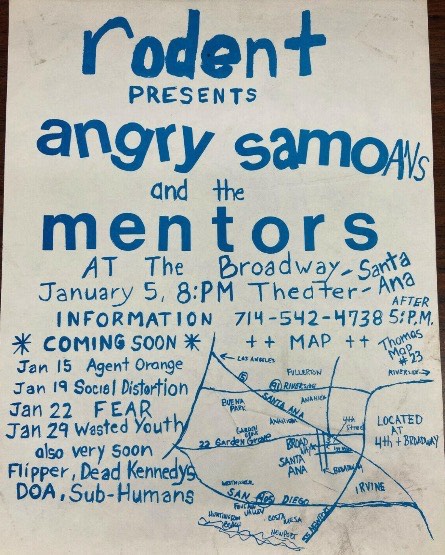 rodent
PRESENTS
angry samoANs
and the
mentors
AT The Broadway - Santa Ana
January 5, 8:PM Theater -
INFORMATION 714-542-4738 AFTER 5:P.M.
* COMING SOON *
Jan 15 Agent Orange
Jan 19 Social Distortion
Jan 22 FEAR
Jan 29 Wasted Youth
also very soon
Flipper, Dead Kennedys
DOA, Sub-Humans
++ MAP ++
Thomas MAP #23
LOS ANGELES
FULLERTON
RIVERSIDE
5
91 RIVERSIDE
SANTA ANA
BUENA PARK
ANAHEIM
GARDEN GROVE
22 Garden Grove
4th STREET
BROADWAY
SANTA ANA
BROADWAY
LOCATED AT 4th + BROADWAY
WESTMINSTER
SAN 405 DIEGO
IRVINE
FOUNTAIN VALLEY
HUNTINGTON BEACH
COSTA MESA
NEWPORT